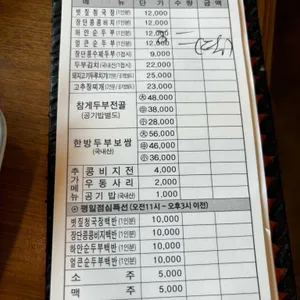 메 뉴 단 가 수 량 금 액
빗짐청국장(1인분) 12,000
장단콩콩비지(1인분) 12,000
하얀순두부(1인분) 12,000
얼큰순두부(1인분) 12,000
장단콩수제두부(1접시) 9,000
두부김치(국내산/1접시) 22,000
25,000
고추장찌개 23,000
참게두부전골 (공기밥별도) 大 48,000
中 38,000
小 28,000
한방두부보쌈 (국내산) 大 56,000
中 46,000
小 36,000
추가메뉴
콩비지전 4,000
우동사리 2,000
공기밥(국내산) 1,000
◎ 평일점심특선 (오전11시~오후3시 이전)
빗짐청국장백반(1인분) 10,000
장단콩콩비지백반(1인분) 10,000
하얀순두부백반(1인분) 10,000
얼큰순두부백반(1인분) 10,000
소 주 5,000
맥 주 5,000